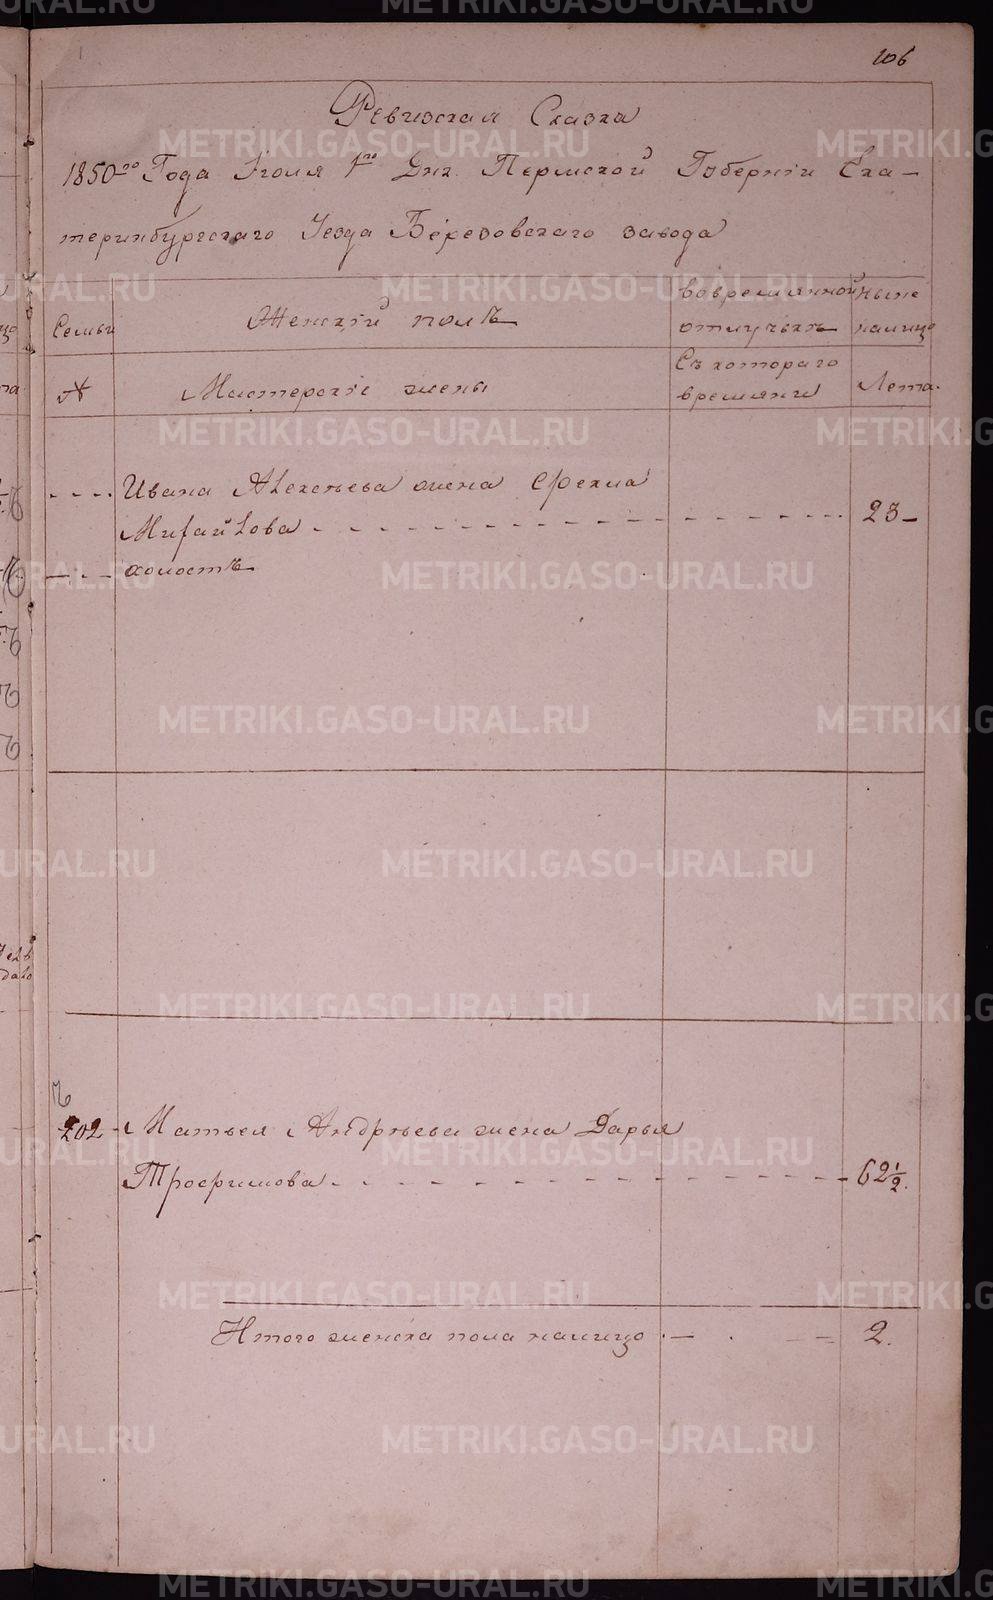 106
Ревизская Сказка
1850го Года Июля 1го Дня. Пермской Губернiи Ека-
теринбургскаго Уезда Березовскаго завода
Семьи
Женскiй полъ
вовременной
отлучькѣ
ныне
налицо
№
Мастерскiе жены
Съ котораго
времяни
Лета.
Ивана Алексѣева жена Фекла
Михайлова 23
холостъ
202 Матвея Андрѣева жена Дарья
Трофимова 62½.
Итого женска пола налицо 2.
METRIKI.GASO-URAL.RU